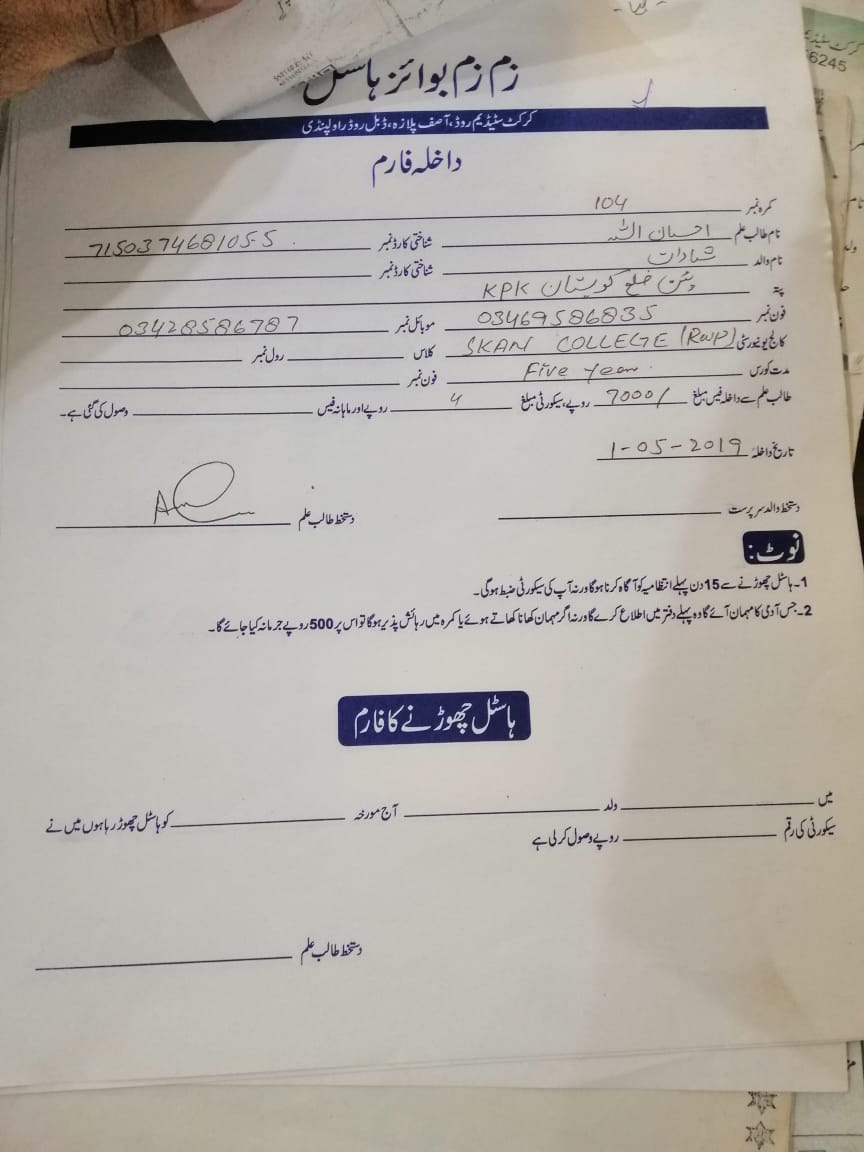 زم زم بوائز ہاسٹل
کرکٹ سٹیڈیم روڈ، آصف پلازہ، ڈبل روڈ راولپنڈی
داخلہ فارم
کمرہ نمبر 104
نام طالب علم احسان اللہ شناختی کارڈ نمبر 7150374681055
نام والد شناختی کارڈ نمبر
پتہ پٹن ضلع کوہستان KPK
فون نمبر 03469586835 موبائل نمبر 03428586787
کالج یونیورسٹی SKANS COLLEGE (RWP) کلاس رول نمبر
مدت کورس Five Year فون نمبر
طالب علم سے داخلہ فیس مبلغ 7000/ روپے، سیکورٹی مبلغ 4 روپے اور ماہانہ فیس وصول کی گئی ہے۔
تاریخ داخلہ 1-05-2019
دستخط والد سرپرست دستخط طالب علم
نوٹ:
1۔ ہاسٹل چھوڑنے سے 15 دن پہلے انتظامیہ کو آگاہ کرنا ہوگا ورنہ آپ کی سیکورٹی ضبط ہوگی۔
2۔ جس آدمی کا مہمان آئے گا وہ پہلے دفتر میں اطلاع کرے گا ورنہ اگر مہمان کھانا کھاتے ہوئے یا کمرہ میں رہائش پذیر ہوگا تو اس پر 500 روپے جرمانہ کیا جائے گا۔
ہاسٹل چھوڑنے کا فارم
میں ولد آج مورخہ کو ہاسٹل چھوڑ رہا ہوں میں نے
سیکورٹی کی رقم روپے وصول کر لی ہے
دستخط طالب علم
کرکٹ سٹیڈیم
6245